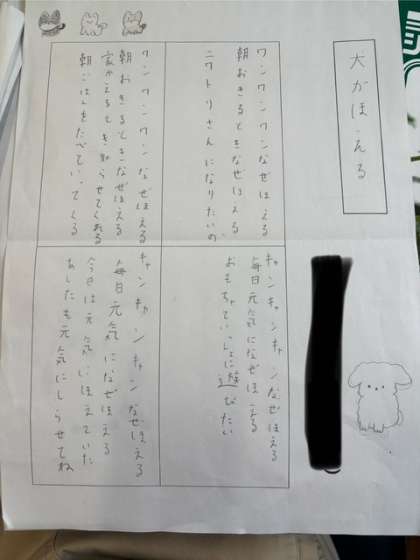 犬がほえる
ワンワンワンなぜほえる
朝おきるときなぜほえる
ニワトリさんになりたいの
ワンワンワンなぜほえる
朝おきるときなぜほえる
家かえるとき知らせてくれる
朝ごはんをたべていってくる
キャンキャンキャンなぜほえる
毎日元気になぜほえる
おもちゃでいっしょに遊びたい
キャンキャンキャンなぜほえる
毎日元気になぜほえる
今日は元気にほえていた
あしたも元気にしらせてね